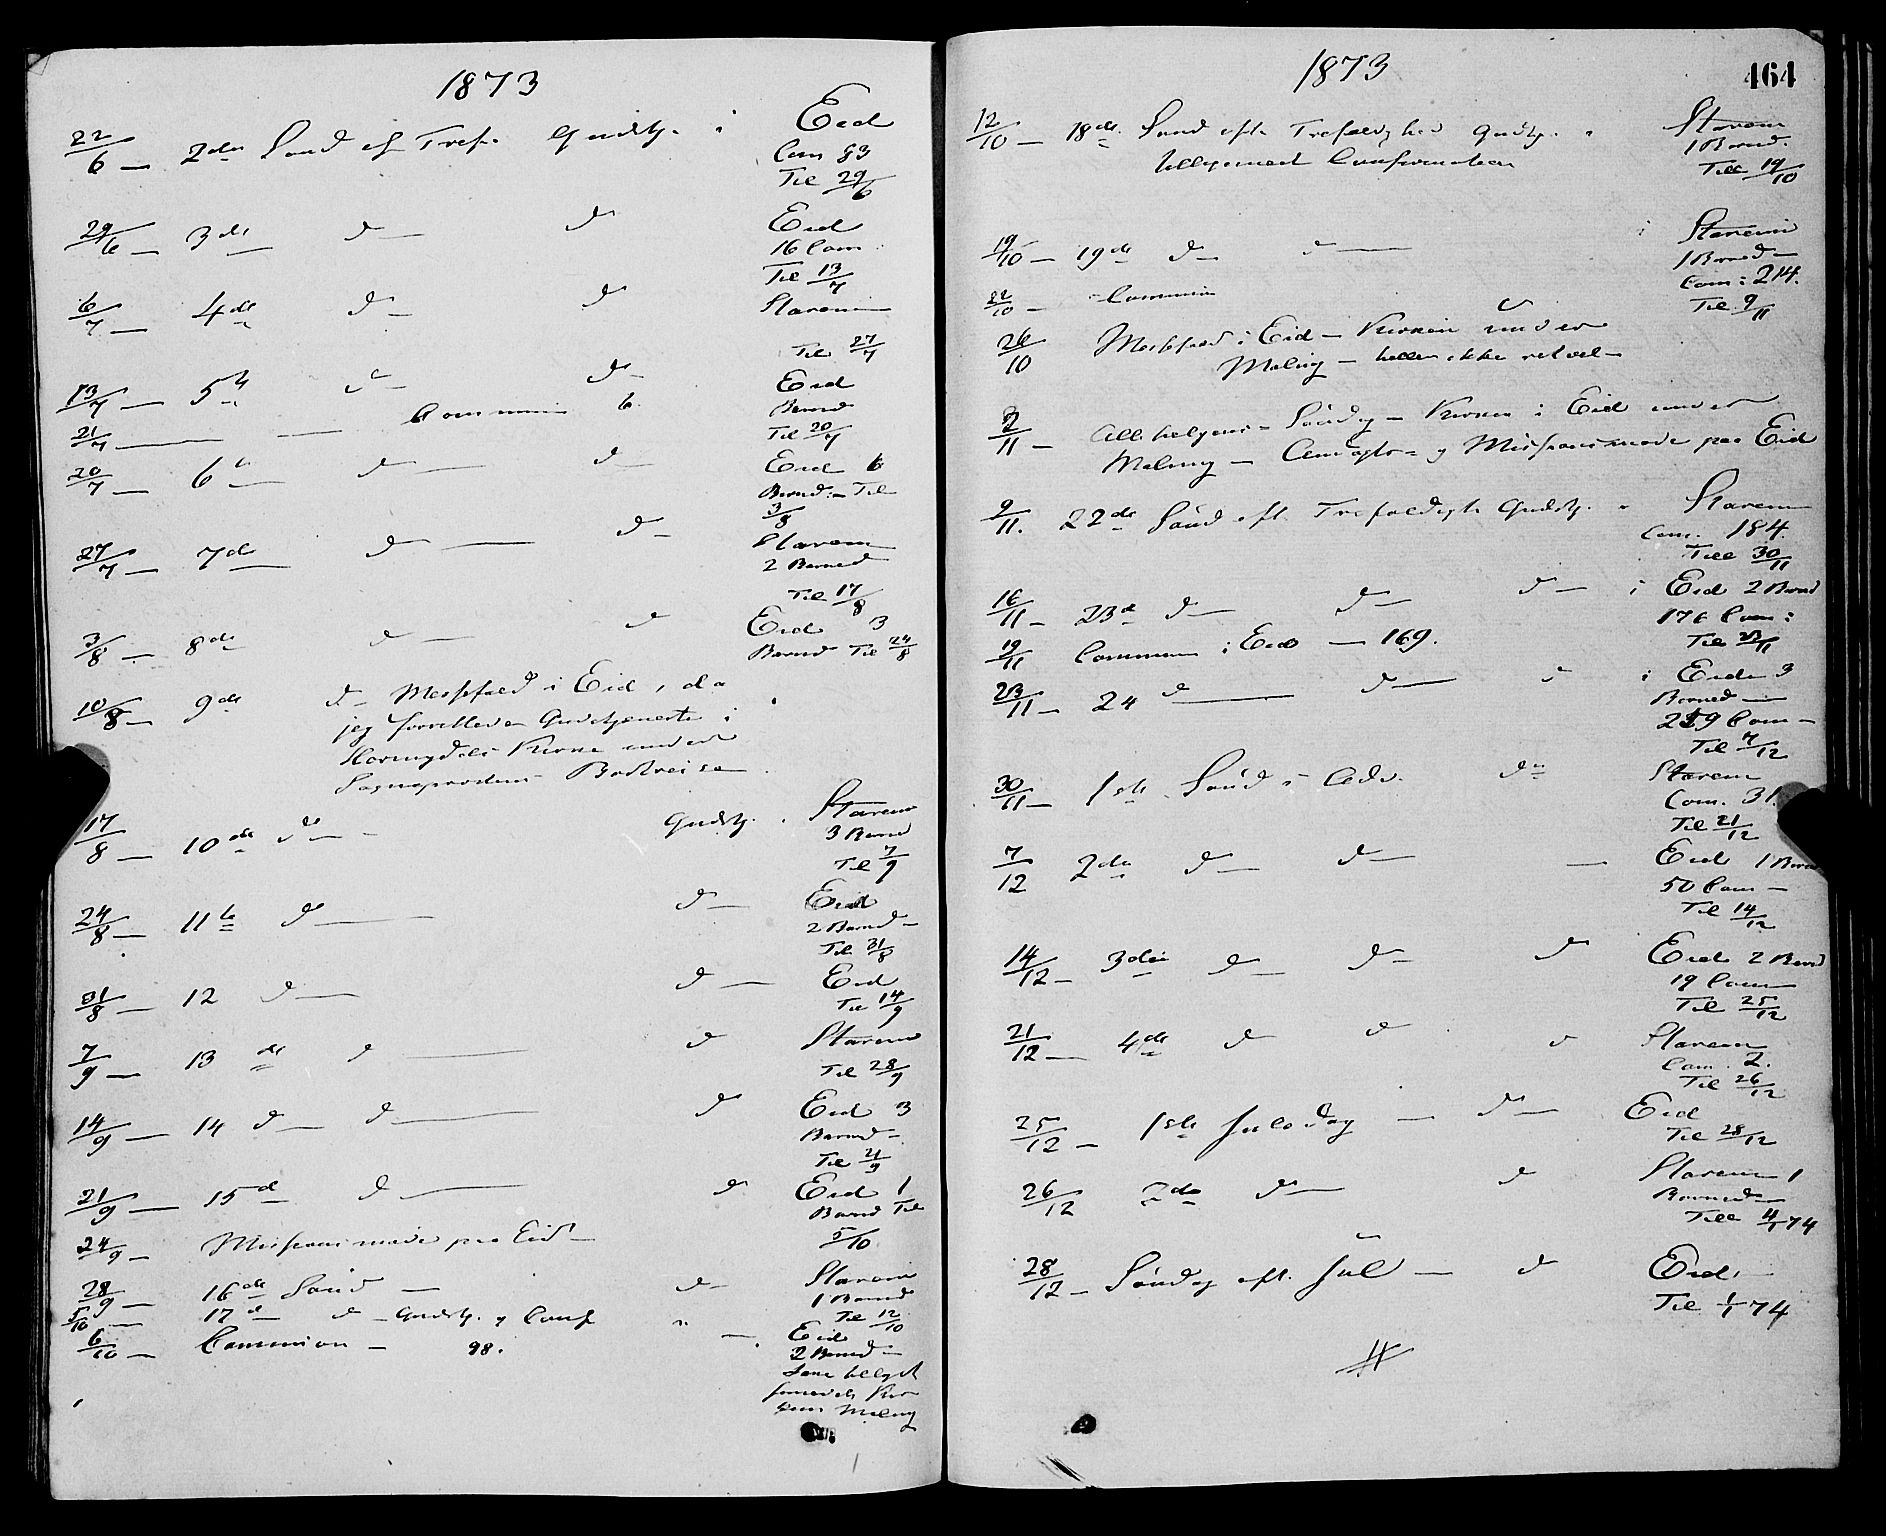 1873
22/6 — 2den Sønd ef Tref. Gudstj. i Eid
Com 83
Til 29/6
29/6 — 3de d— d Eid
16 Com
Til 13/7
6/7 — 4de d— d Starem
Til 27/7
13/7 — 5te d— d— Eid
Barned
21/7 — — Communion 6.
Til 20/7
20/7 — 6te d— d— Eid 6
Barned — Til
3/8
27/7 — 7de d— d— Starem
2 Barned
Til 17/8
3/8 — 8de d— d Eid 3
Barned Til 24/8
10/8 — 9de d— Messefald i Eid, da
jeg forrettede Gudstjeneste i
Horningdals Kirke under
Sognepræstens Bortreise
17/8 — 10de do— Gudstj. i Starem
3 Barned
Til 7/9
24/8 — 11te d— d— Eid
2 Barned —
Til 31/8
31/8 — 12 d— d— Eid
Til 14/9
7/9 — 13de d — d Starem
Til 28/9
14/9 — 14 d— d— d Eid 3
Barned —
Til 21/9
21/9 — 15d d— d Eid 1
Barned Til
5/10
24/9 — Missionsmøde paa Eid —
28/9 — 16de Sønd — d— Starem
1 Barned
Til 12/10
5/10 — 17d d— Gudstj. og Conf " — Eid
6/10 — Communion — 98.
2 Barned —
Maling
1873
464
12/10 — 18de Sønd efter Trefoldighed Gudtj. i Starem
1 Barned.
Alligemed Confirmation
Till 19/10
19/10 — 19de d— d— i Starem
1 Barned —
Com: 214.
22/10 — Communion
Til 9/11
26/10 Messefald i Eid — Kirken under
Maling —
2/11 — Allehelgens-Søndag — Kirken i Eid under
Maling — og Missionsmøde paa Eid
9/11. 22de Sønd eft. Trefoldigh. Gudstj. i Starem
Com. 184.
Till 30/11
16/11 — 23d d— d— d— i Eid 2 Barned
176 Com:
Til 23/11
19/11 Communion i Eid — 169.
23/11 — 24 d— d— d i Eid 3
Barned —
259 Com —
Til 7/12
30/11 — 1ste Sønd i Adv. do Starem
Com. 31.
Til 21/12
7/12 2den d— d— — Eid 1 Barned
50 Com —
Til 14/12
14/12 — 3die d— d— d Eid 2 Barned
19 Com
Til 25/12
21/12 — 4de d d d Starem
Com. 2.
Til 26/12
25/12 — 1ste Juledag — d— Eid
Til 28/12
26/12 2den d— d Starem 1
Barned
Till 4/1 74
28/12 — Søndag eft. Jul — d Eid
Til 1/1 74